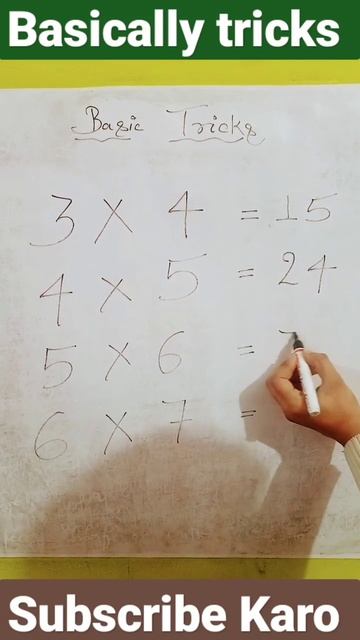 Basically tricks
Basic Tricks
3 × 4 = 15
4 × 5 = 24
5 × 6 =
6 × 7 =
Subscribe Karo